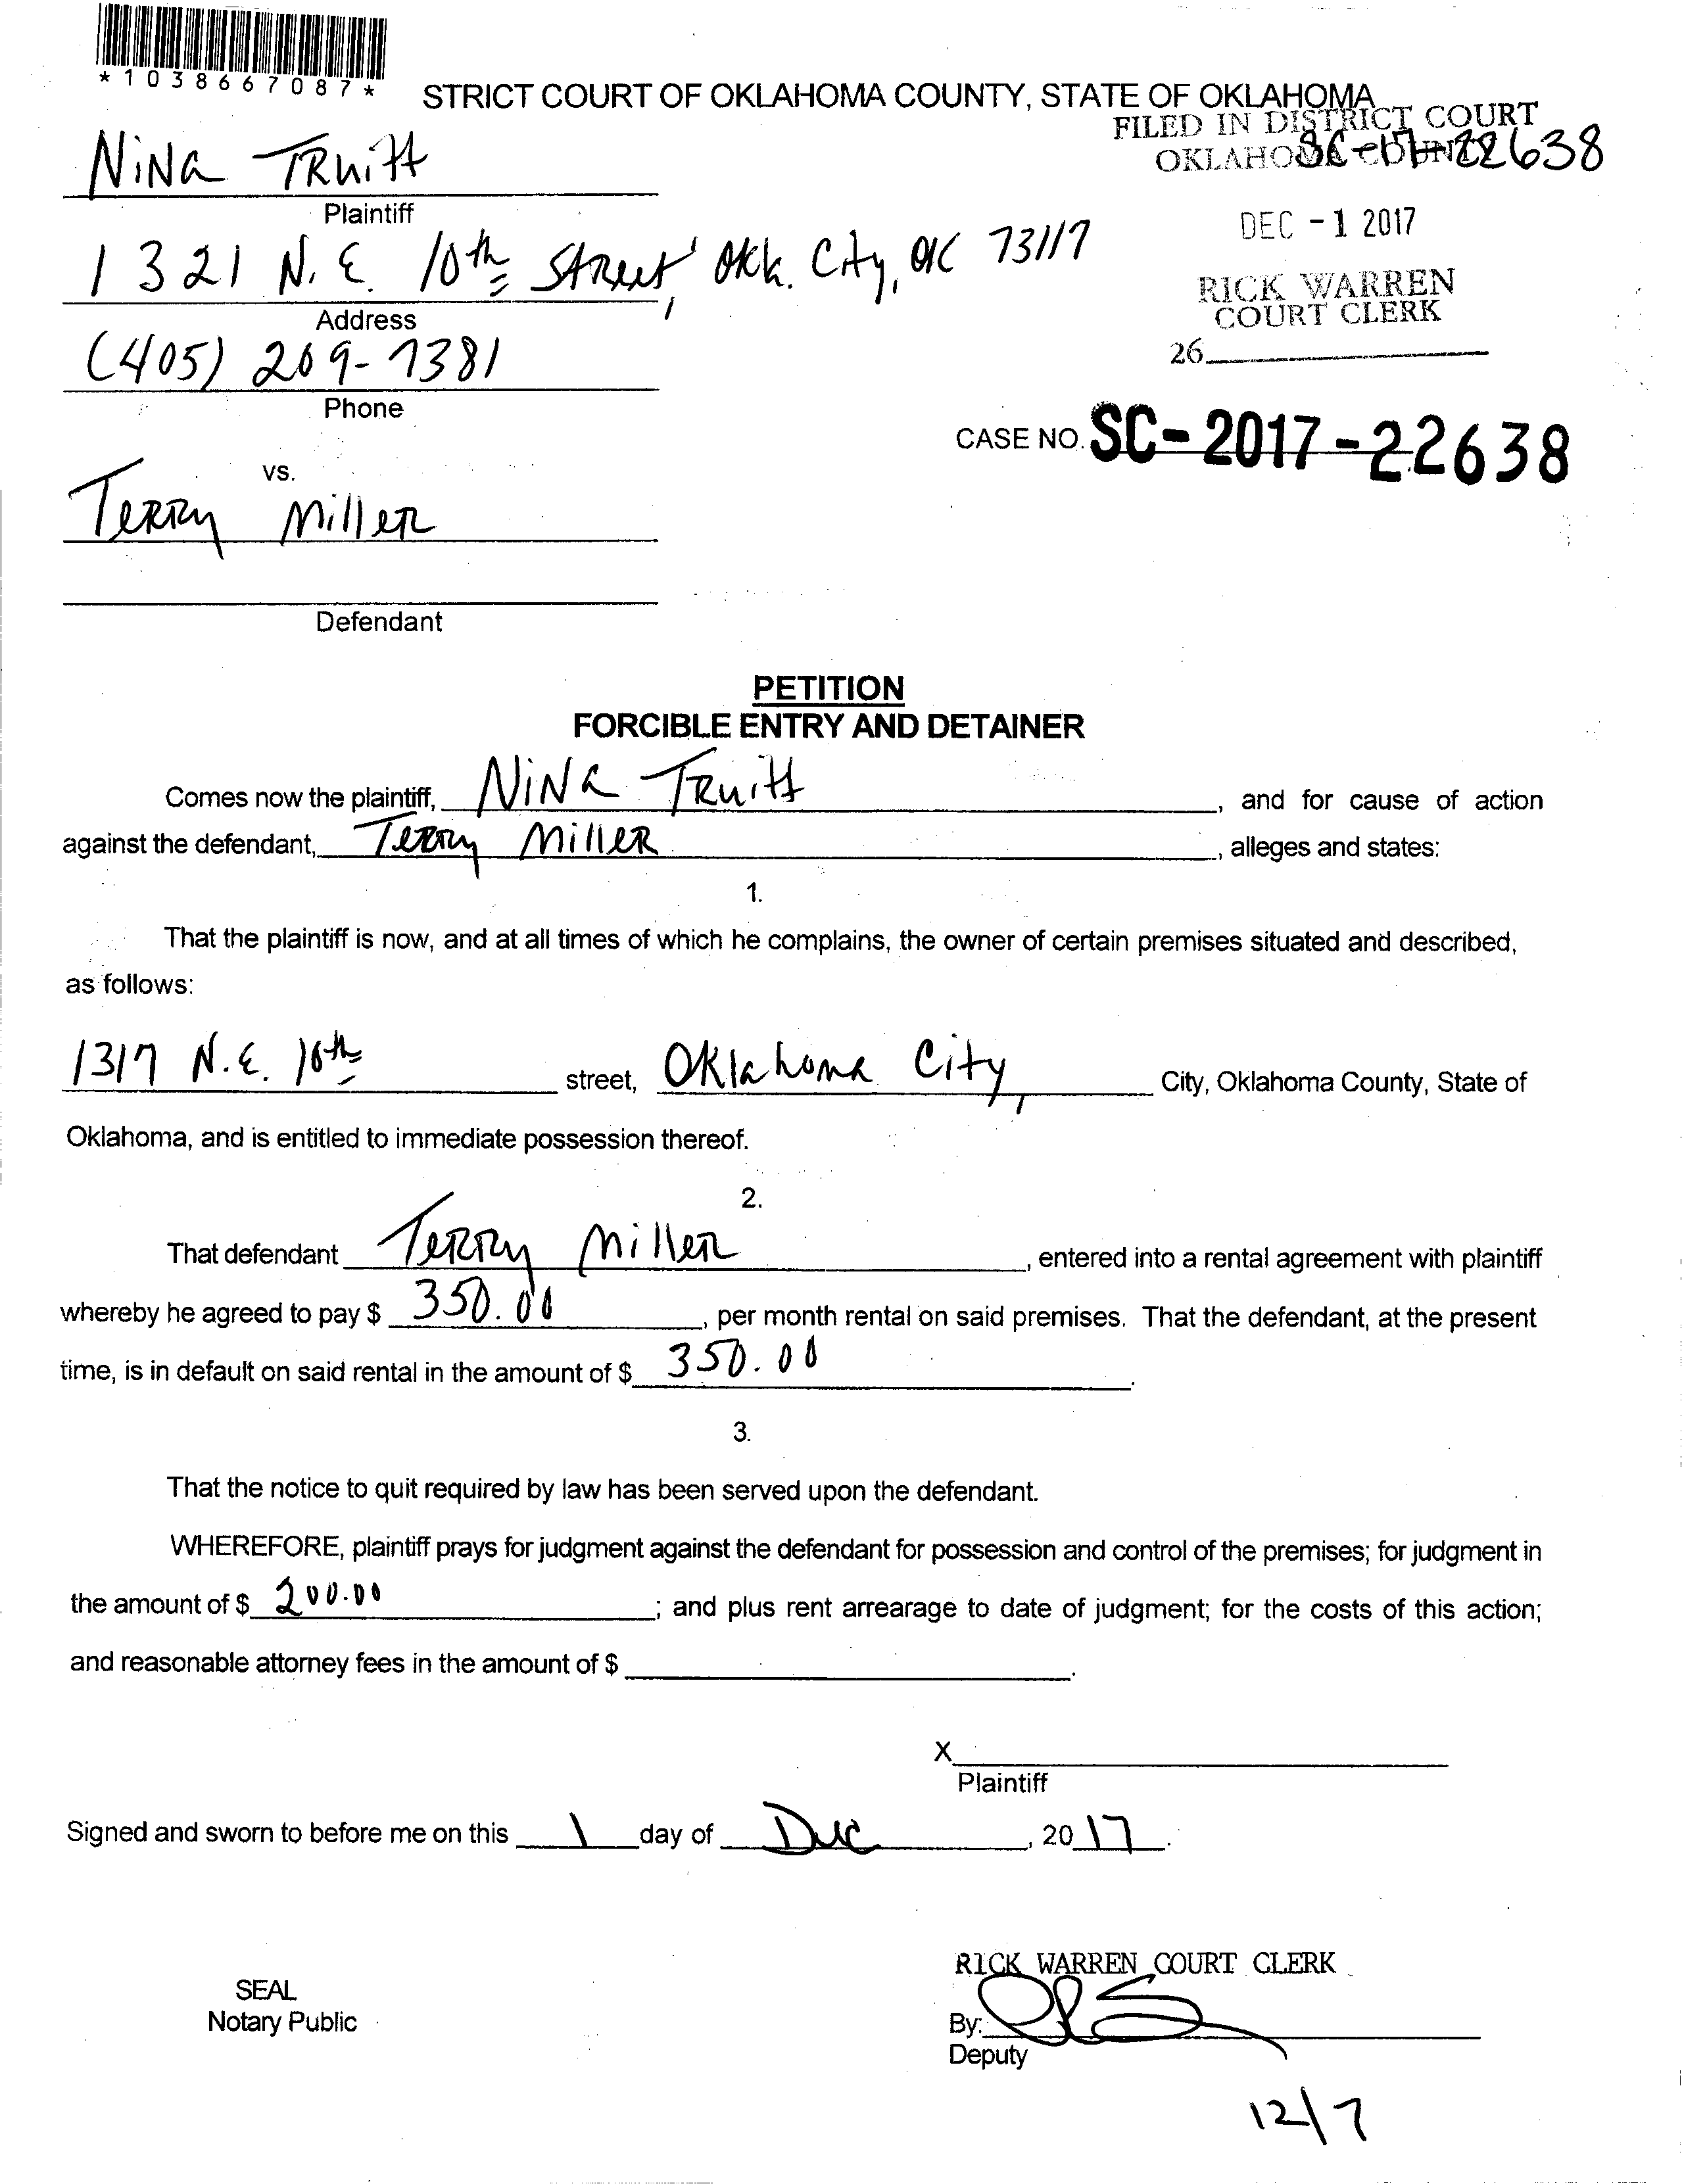 *1038667087*
STRICT COURT OF OKLAHOMA COUNTY, STATE OF OKLAHOMA
FILED IN DISTRICT COURT
OKLAHOMA COUNTY
SC-17-22638
NiNa TRuitt
Plaintiff
DEC -1 2017
1321 N.E. 10th Street, Okla. City, OK 73117
Address
RICK WARREN
COURT CLERK
(405) 209-7381
Phone
26
CASE NO. SC-2017-22638
vs.
Terry Miller
Defendant
PETITION
FORCIBLE ENTRY AND DETAINER
Comes now the plaintiff, NiNa TRuitt, and for cause of action
against the defendant, Terry Miller, alleges and states:
1.
That the plaintiff is now, and at all times of which he complains, the owner of certain premises situated and described,
as follows:
1317 N.E. 10th street, Oklahoma City, City, Oklahoma County, State of
Oklahoma, and is entitled to immediate possession thereof.
2.
That defendant Terry Miller, entered into a rental agreement with plaintiff
whereby he agreed to pay $ 350.00, per month rental on said premises. That the defendant, at the present
time, is in default on said rental in the amount of $ 350.00.
3.
That the notice to quit required by law has been served upon the defendant.
WHEREFORE, plaintiff prays for judgment against the defendant for possession and control of the premises; for judgment in
the amount of $ 200.00; and plus rent arrearage to date of judgment; for the costs of this action;
and reasonable attorney fees in the amount of $ .
X
Plaintiff
Signed and sworn to before me on this 1 day of Dec, 2017.
RICK WARREN COURT CLERK
SEAL
Notary Public
By:
Deputy
12/7